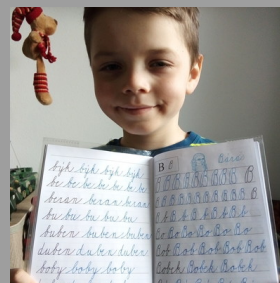 býk býk býk býk
be be be be be be be
beran beran beran
bu bu bu bu bu
buben buben buben
duben duben duben
boby boby boby
B B
Bára
B B B B B B B B B
Bo Bo Bo Bo Bo Bo
Bob Bob Bob Bob Bob
Bobek Bobek Bobek